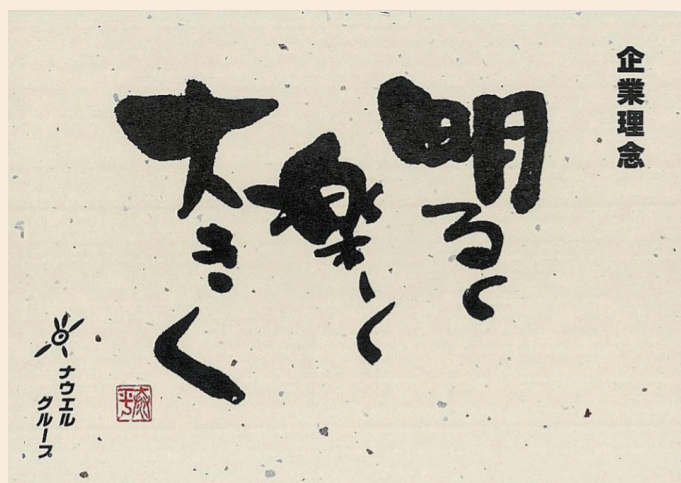 企業理念
明るく
楽しく
大きく
ナウエル
グループ